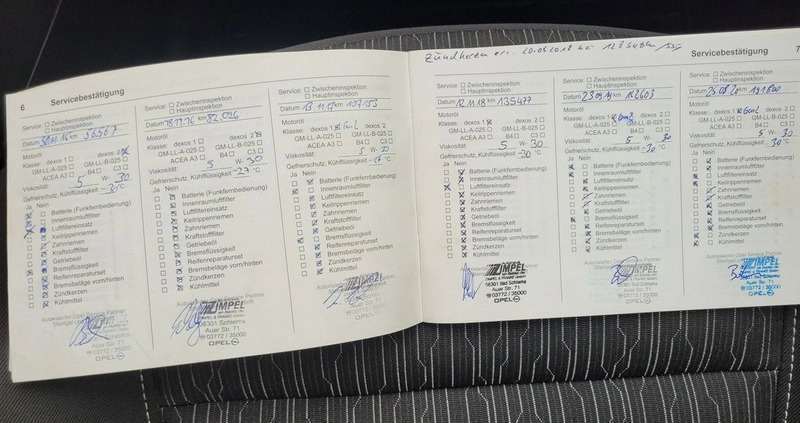 6 Servicebestätigung
Service: ☐ Zwischeninspektion
☐ Hauptinspektion
Datum km 56567
Motoröl
Klasse: dexos 1 ☐ dexos 2
GM-LL-A-025 ☐ GM-LL-B-025 ☐
ACEA A3 ☐ B4 ☐ C3 ☐
Viskosität: 5 W- 30
Gefrierschutz, Kühlflüssigkeit -30 °C
Ja Nein
Batterie (Funkfernbedienung)
Innenraumluftfilter
Luftfiltereinsatz
Keilrippenriemen
Zahnriemen
Kraftstofffilter
Getriebeöl
Bremsflüssigkeit
Reifenreparaturset
Bremsbeläge vorn/hinten
Zündkerzen
Kühlmittel
Auer Str. 71
03772 / 35000
OPEL
Service: ☐ Zwischeninspektion
☐ Hauptinspektion
Datum km 82026
Motoröl
Klasse: dexos 1 ☐ dexos 2
GM-LL-A-025 ☐ GM-LL-B-025 ☐
ACEA A3 ☐ B4 ☐ C3 ☐
Viskosität: 5 W- 30
Gefrierschutz, Kühlflüssigkeit -27 °C
Ja Nein
Batterie (Funkfernbedienung)
Innenraumluftfilter
Luftfiltereinsatz
Keilrippenriemen
Zahnriemen
Kraftstofffilter
Getriebeöl
Bremsflüssigkeit
Reifenreparaturset
Bremsbeläge vorn/hinten
Zündkerzen
Kühlmittel
ZIMPEL
08301 Schlema
Auer Str. 71
03772 / 35000
OPEL
Service: ☐ Zwischeninspektion
☐ Hauptinspektion
Datum 13.11.17 km 107155
Motoröl
Klasse: dexos 1 dexos 2 ☐
GM-LL-A-025 ☐ GM-LL-B-025 ☐
ACEA A3 ☐ B4 ☐ C3 ☐
Viskosität: 5 W- 30
Gefrierschutz, Kühlflüssigkeit °C
Ja Nein
Batterie (Funkfernbedienung)
Innenraumluftfilter
Luftfiltereinsatz
Keilrippenriemen
Zahnriemen
Kraftstofffilter
Getriebeöl
Bremsflüssigkeit
Reifenreparaturset
Bremsbeläge vorn/hinten
Zündkerzen
Kühlmittel
Auer Str. 71
03772 / 35000
OPEL
Servicebestätigung 7
Service: ☐ Zwischeninspektion
☐ Hauptinspektion
Datum 12.11.18 km 135477
Motoröl
Klasse: dexos 1 dexos 2 ☐
GM-LL-A-025 ☐ GM-LL-B-025 ☐
ACEA A3 ☐ B4 ☐ C3 ☐
Viskosität: 5 W- 30
Gefrierschutz, Kühlflüssigkeit °C
Ja Nein
Batterie (Funkfernbedienung)
Innenraumluftfilter
Luftfiltereinsatz
Keilrippenriemen
Zahnriemen
Kraftstofffilter
Getriebeöl
Bremsflüssigkeit
Reifenreparaturset
Bremsbeläge vorn/hinten
Zündkerzen
Kühlmittel
ZIMPEL
08301 Bad Schlema
Auer Str. 71
03772 / 35000
OPEL
Service: ☐ Zwischeninspektion
☐ Hauptinspektion
Datum km
Motoröl
Klasse: dexos 1 dexos 2 ☐
GM-LL-A-025 ☐ GM-LL-B-025 ☐
ACEA A3 ☐ B4 ☐ C3 ☐
Viskosität: 5 W- 30
Gefrierschutz, Kühlflüssigkeit -30 °C
Ja Nein
Batterie (Funkfernbedienung)
Innenraumluftfilter
Luftfiltereinsatz
Keilrippenriemen
Zahnriemen
Kraftstofffilter
Getriebeöl
Bremsflüssigkeit
Reifenreparaturset
Bremsbeläge vorn/hinten
Zündkerzen
Kühlmittel
ZIMPEL
Auer Str. 71
03772 / 35000
OPEL
Service: ☐ Zwischeninspektion
☐ Hauptinspektion
Datum km 191800
Motoröl
Klasse: dexos 1 dexos 2 ☐
GM-LL-A-025 ☐ GM-LL-B-025 ☐
ACEA A3 ☐ B4 ☐ C3 ☐
Viskosität: 5 W- 30
Gefrierschutz, Kühlflüssigkeit -30 °C
Ja Nein
Batterie (Funkfernbedienung)
Innenraumluftfilter
Luftfiltereinsatz
Keilrippenriemen
Zahnriemen
Kraftstofffilter
Getriebeöl
Bremsflüssigkeit
Reifenreparaturset
Bremsbeläge vorn/hinten
Zündkerzen
Kühlmittel
ZIMPEL
08301 Bad Schlema
Auer Str. 71
03772 / 35000
OPEL